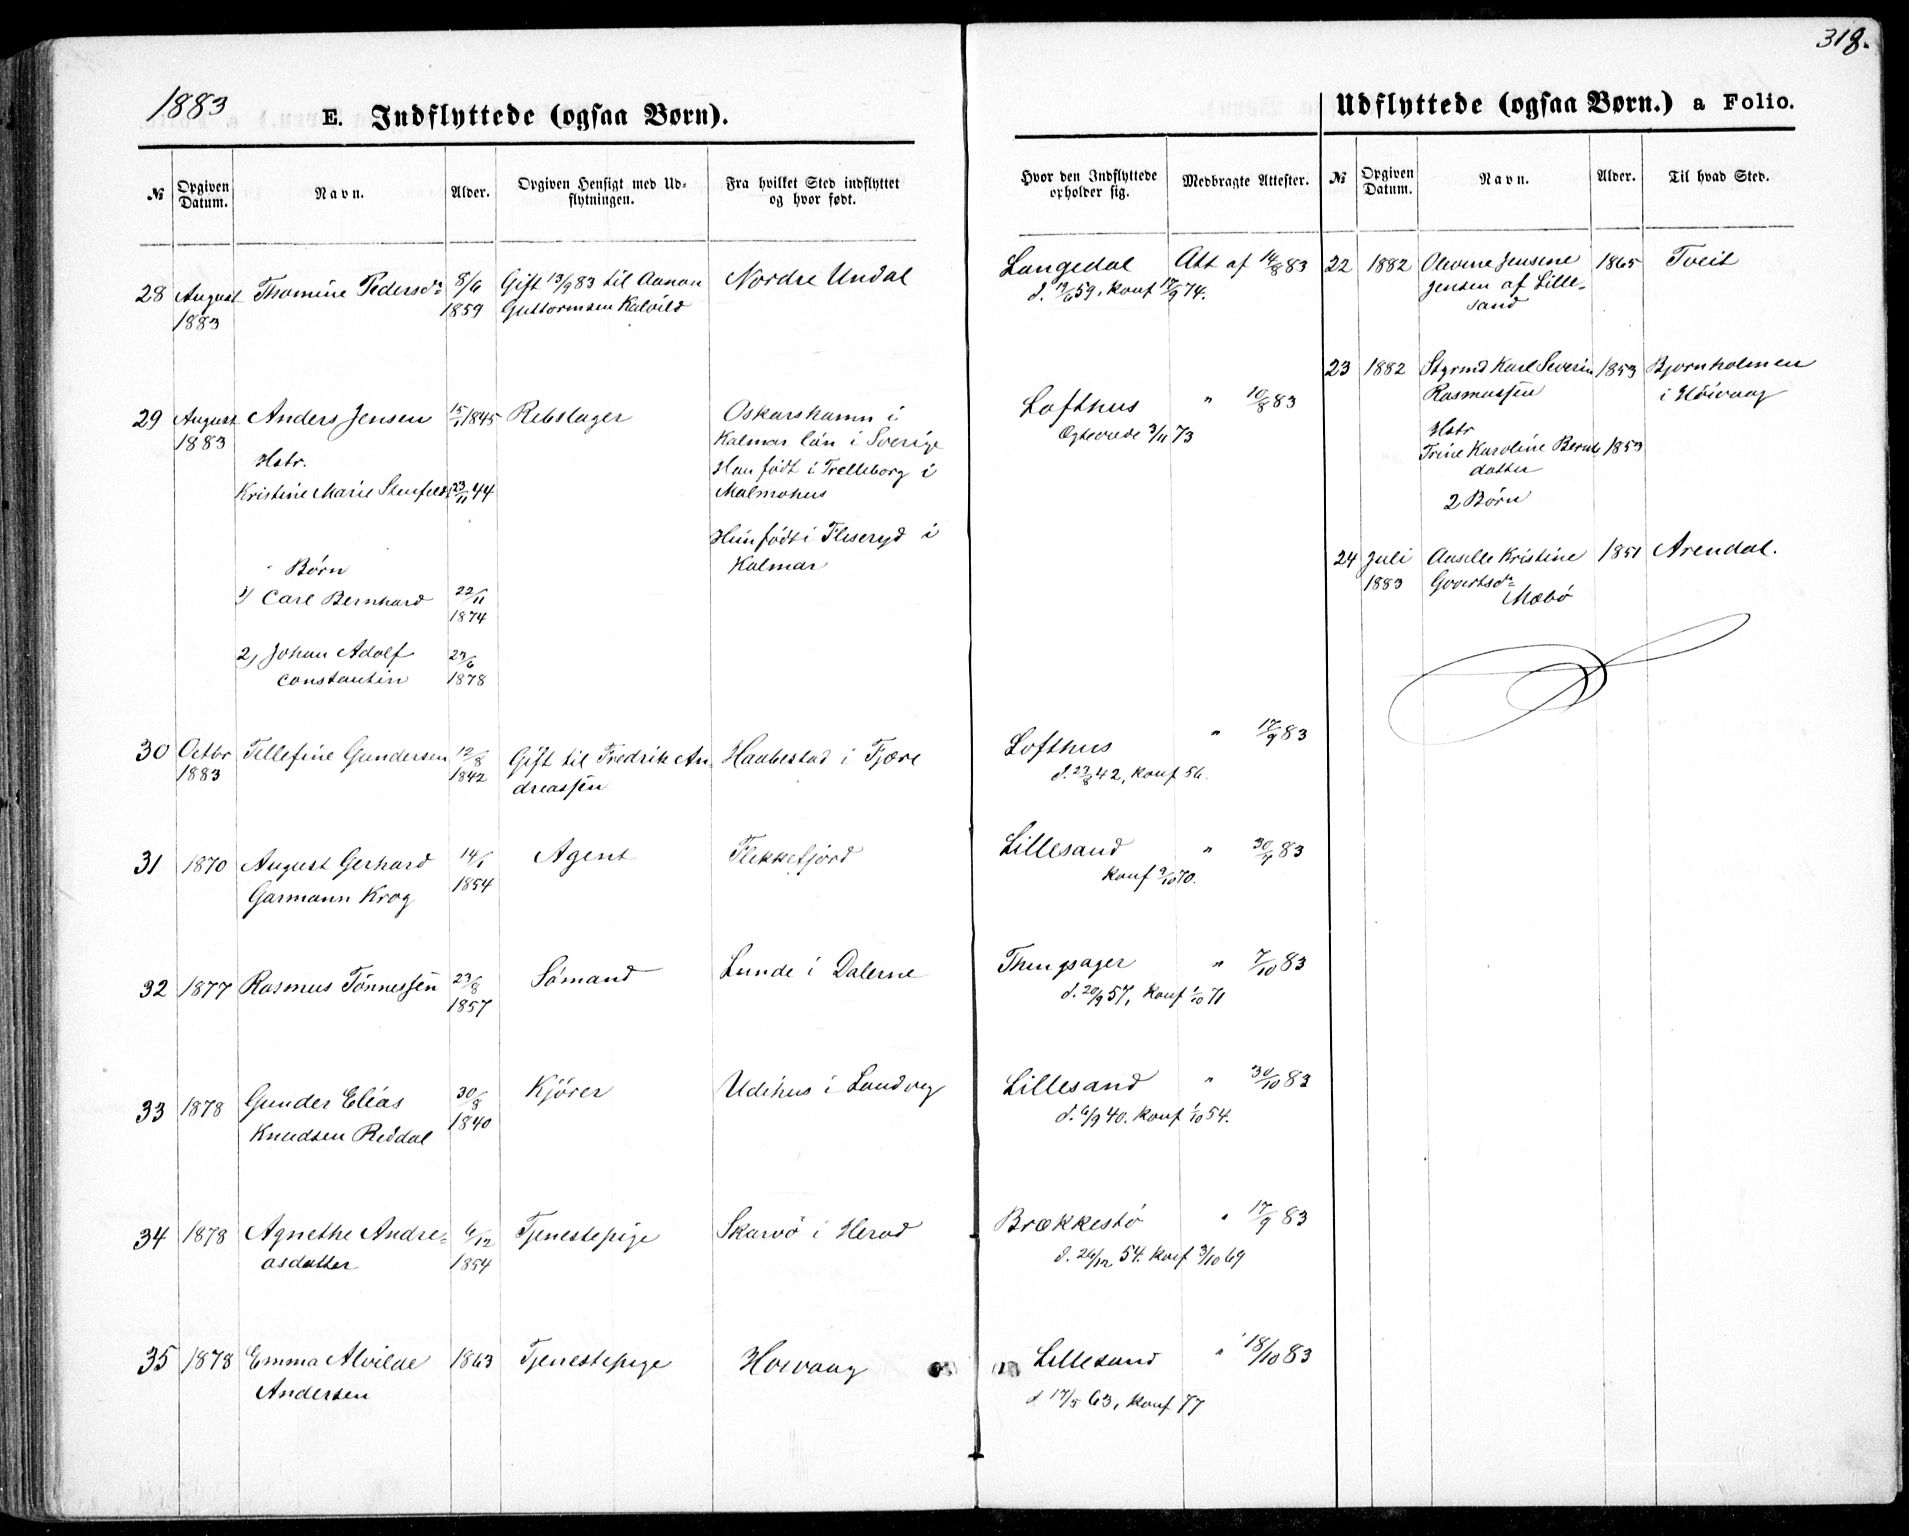 318.
1883
E. Indflyttede (ogsaa Børn).
Udflyttede (ogsaa Børn.) a Folio.
№ Opgiven Datum. Navn. Alder. Opgiven Hensigt med Udflytningen. Fra hvilket Sted indflyttet og hvor født. Hvor den Indflyttede opholder sig. Medbragte Attester.
№ Opgiven Datum. Navn. Alder. Til hvad Sted.
28 August Thomine Pedersd. 8/6 Gift 13/9 83 til Aanon Nordre Undal Langedal Att af 14/8 83
1883 1859 Guttormsen Kalvild d. 19/6 59, konf 74.
29 August Anders Jensen 15/1 1845 Rebslager Oskarshamn i Lofthus " 10/8 83
1883 Kalmar län i Sverige Ægteviede 3/11 73
Hstr. Han født i Trelleborg i
Kristine Marie 23/11 44 Malmøhus
Hun født i Fliseryd i
Børn Kalmar
1) Carl Bernhard 22/11
1874
2) Johan Adolf 23/6
Constantin 1878
30 Octbr Tellefine Gundersen 12/8 Gift til Fredrik An- Haabestad i Fjære Lofthus " 17/9 83
1883 1842 dreassen d. 23/8 42, konf 56.
31 1870 August Gerhard 14/1 Agent Flekkefjord Lillesand " 83
Garmann Krog 1854 konf 9/10 70.
32 1877 Rasmus Tønnessen 23/8 Sømand Lunde i Dalerne Thingsager " 7/10 83
1857 d. 20/9 57, konf 1/10 71
33 1878 Gunder Elias 30/8 Kjører Udihus i Landvig Lillesand " 30/10 83
Knudsen Reddal 1840 d. 6/9 40. konf 1/10 54.
34 1878 Agnethe Andre- 6/12 Tjenestepige Skarvø i Herad Brækkestø " 17/9 83
asdatter 1854 d. 26/12 54. konf 3/10 69
35 1878 Emma Alvilde 1863 Tjenestepige Høivaag Lillesand " 18/10 83
Andersen d 17/5 63, konf 77
22 1882 Olevine Jensine 1865 Tveit
Jensen af Lille-
sand
23 1882 Styrmd Karl Severin 1853 Bjørnholmen
Rasmussen i Høivaag
Hstr
Trine Karoline Bernts 1853
datter
2 Børn
24 Juli Kristine 1851 Arendal.
1883
Mæbø